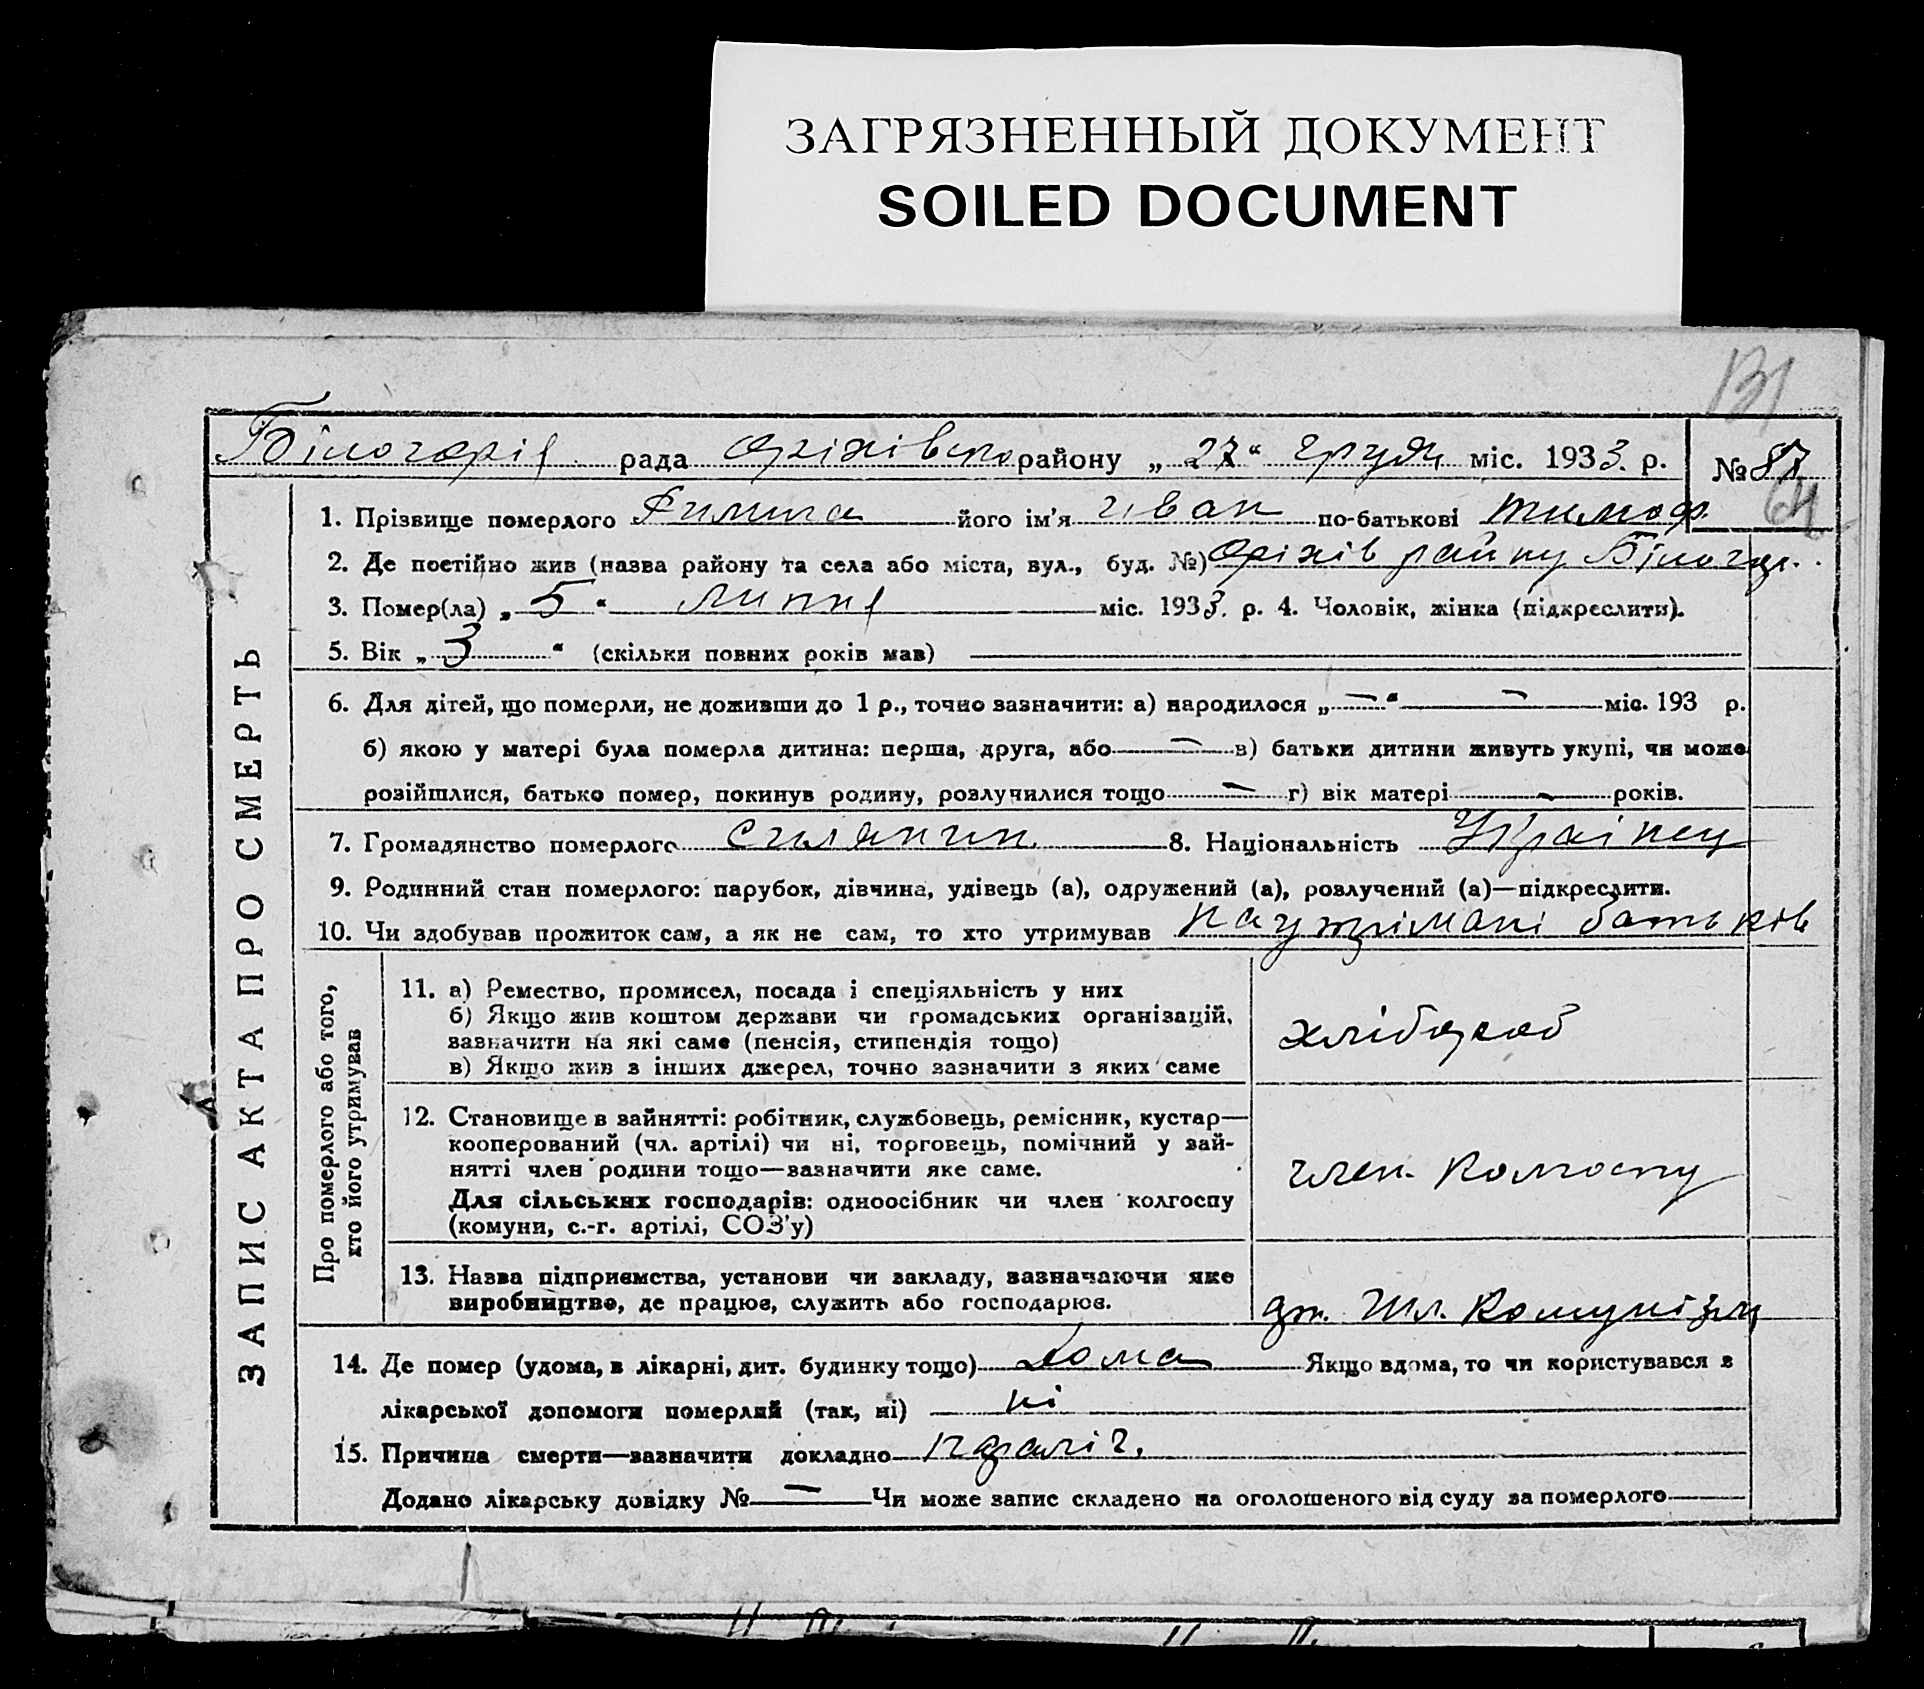 ЗАГРЯЗНЕННЫЙ ДОКУМЕНТ
SOILED DOCUMENT
131
Білогоріє рада Оріхівсько району „ 27 “ грудн міс. 1933. р. № 87
64
1. Прізвище померлого його ім'я Іван по-батькові Тимоф.
2. Де постійно жив (назва району та села або міста, вул., буд. №) Оріхів району Білогор.
3. Помер(ла) „ 5 “ липня міс. 1933. р. 4. Чоловік, жінка (підкреслити).
5. Вік „ 3 “ (скільки повних років мав)
6. Для дітей, що померли, не доживши до 1 р., точно зазначити: а) народилося „ — “ — міс. 193 р.
б) якою у матері була померла дитина: перша, друга, або — в) батьки дитини живуть укупі, чи може
розійшлися, батько помер, покинув родину, розлучилися тощо — г) вік матері — років.
7. Громадянство померлого силянин 8. Національність Українец
9. Родинний стан померлого: парубок, дівчина, удівець (а), одружений (а), розлучений (а)—підкреслити.
10. Чи здобував прожиток сам, а як не сам, то хто утримував на утримані батьків
ЗАПИС АКТА ПРО СМЕРТЬ
Про померлого або того,
хто його утримував
11. а) Ремество, промисел, посада і спеціяльність у них
б) Якщо жив коштом держави чи громадських організацій,
зазначити на які саме (пенсія, стипендія тощо)
в) Якщо жив з інших джерел, точно зазначити з яких саме
хлібороб
12. Становище в зайнятті: робітник, службовець, ремісник, кустар—
кооперований (чл. артілі) чи ні, торговець, помічний у зай-
нятті член родини тощо—зазначити яке саме.
Для сільських господарів: одноосібник чи член колгоспу
(комуни, с.-г. артілі, СОЗ'у)
член. колгоспу
13. Назва підприємства, установи чи закладу, зазначаючи яке
виробництво, де працює, служить або господарює.
Шл. Комунізму
14. Де помер (удома, в лікарні, дит. будинку тощо) Дома Якщо вдома, то чи користувався з
лікарської допомоги померлий (так, ні) ні
15. Причина смерти—зазначити докладно параліч.
Додано лікарську довідку № — Чи може запис складено на оголошеного від суду за померлого